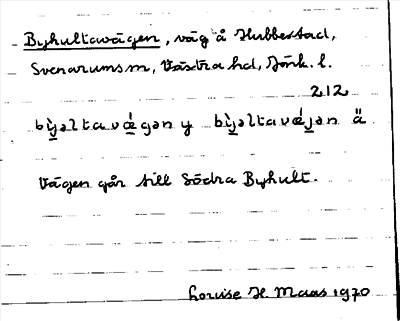 Byhultavägen, väg å Hubbestad,
Svenarums sn, Västra hd, Jönk. l.
212
bỳ̲jəltavǽ̲gən y bỳ̲jəltavǽ̲jən ä
Vägen går till Södra Byhult.
Louise H. Maas 1970